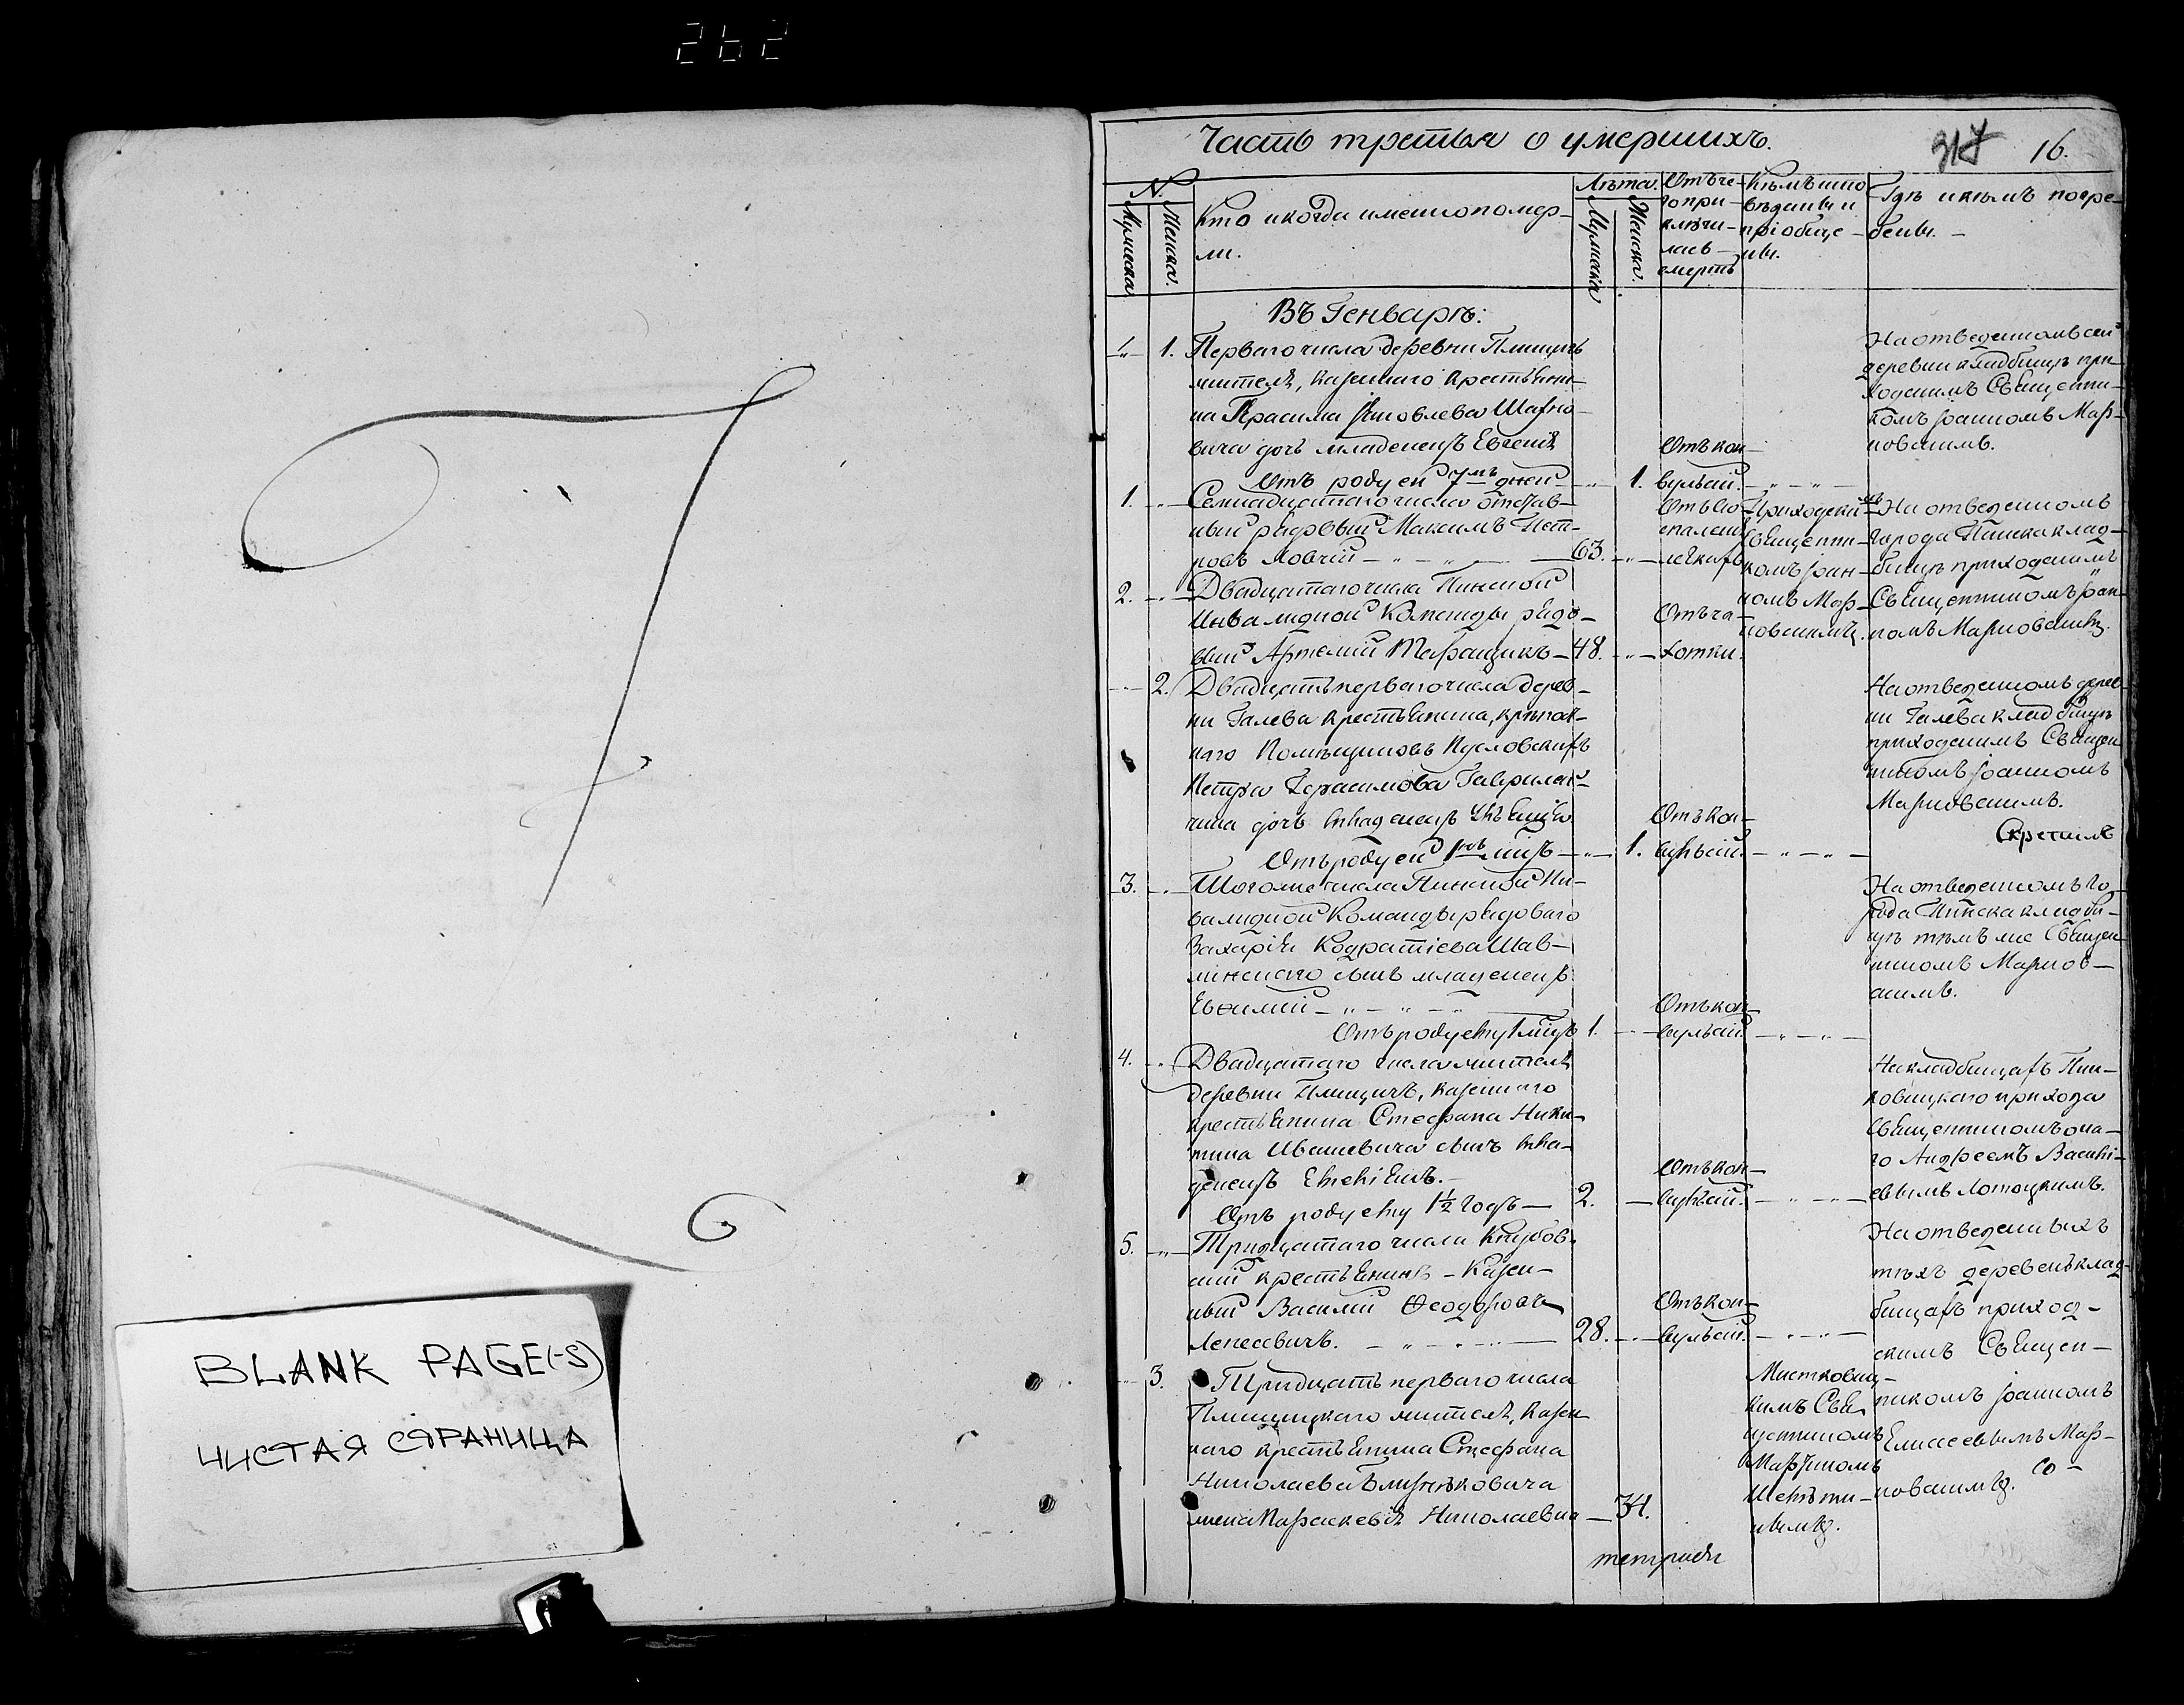 262
BLANK PAGE(-S)
ЧИСТАЯ СТРАНИЦА
Часть третья о умершихъ.
317 16.
N.
Мужеска
Женска.
Кто и когда именно помер-
ли.
Лѣта.
Мужеска
Женска.
Отъ че-
го при-
ключи-
лась
смерть
Кѣмъ испо-
вѣданы и
пріобще-
ны.
Гдѣ и кѣмъ погре-
бены. -
Въ Генварѣ:
1. Перваго числа деревни Плищичъ
жителя, казеннаго крестьяни-
на Яковлева
вича дочь младенецъ Евгенія
Отъ роду ей 7мъ дней 1.
Отъ кон-
вульсій.
На отведенномъ сей
деревни кладбищѣ при-
ходскимъ Священни-
комъ Іоанномъ Мар-
новскимъ.
1. Семнадцатаго числа отстав-
ный рядовый Максимъ Пет-
ровъ Ловчій 63.
Отъ во-
спаленія
легкихъ
Приходскимъ
Священни-
комъ Іоан-
номъ Мар-
новскимъ.
На отведенномъ
города Пинска клад-
бищѣ приходскимъ
Священникомъ Іоан-
номъ Марновскимъ.
2. Двадцатаго числа Пинской
Инвалидной Команды рядо-
вый Артемій Таращикъ 48.
Отъ ча-
хотки.
2. Двадцать перваго числа дерев-
ни Галева крестьянина, крѣпост-
наго Помѣщиковъ Пусловскихъ
Петра Герасимова Гаврилен-
чика дочь младенецъ
Отъ роду ей 1 мцъ 1.
Отъ кон-
вульсій.
На отведенномъ дерев-
ни Галева кладбищѣ
приходскимъ Священ-
никомъ Іоанномъ
Марновскимъ.
3. Тогоже числа Пинской Ин-
валидной Команды рядоваго
Захарія Кодратіева Шав-
линскаго сынъ младенецъ
Евѳимій
Отъ роду ему 1 мцъ 1.
Отъ кон-
вульсій.
На отведенномъ го-
рода Пинска кладби-
щѣ тѣмъ же Священ-
никомъ Марнов-
скимъ.
4. Двадцатаго числа жителя
деревни Плищичъ, казеннаго
крестьянина Стефана Ники-
тина Ивашевича сынъ мла-
денецъ
Отъ роду ему 1½ годъ 2.
Отъ кон-
вульсій.
На кладбищахъ Пин-
ковицкаго прихода
Священникомъ она-
го Андреемъ Василі-
евымъ Лотоцкимъ.
5. Тридцатаго числа
скій крестьянинъ - казен-
ный Василій Ѳеодоровъ
Лепесевичъ. 28.
Отъ кон-
вульсій.
На отведенныхъ
тѣхъ деревень клад-
бищахъ приход-
скимъ Священ-
никомъ Іоанномъ
Елисеевымъ Мар-
новскимъ.
3. Тридцать перваго числа
Плищицкаго жителя, казен-
наго крестьянина Стефана
Николаева
жена Параскевія Николаевна 34.
Мистковиц-
кимъ Свя-
щенникомъ